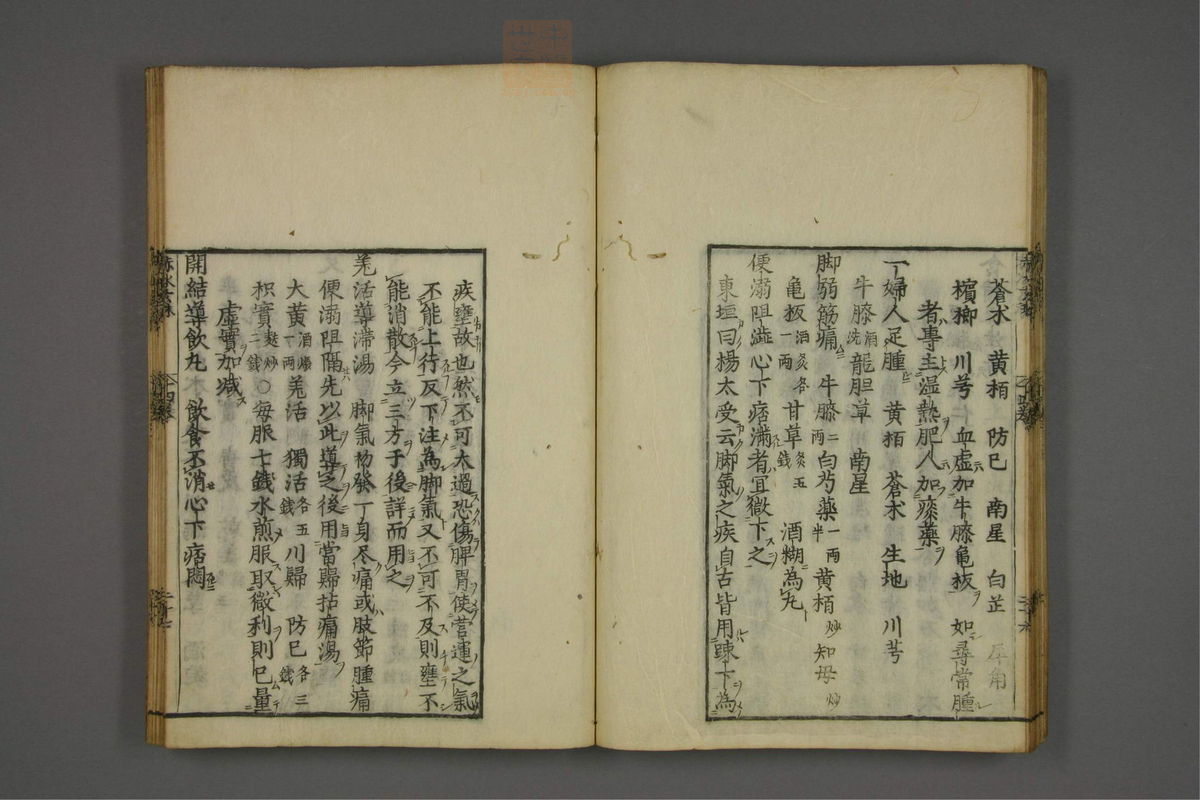 蒼朮 黃栢 防已 南星 白芷 犀角
檳榔 川芎 血虛加牛膝龜板 如尋常腫
者專主濕熱肥人加痰藥
一婦人足腫 黃栢 蒼朮 生地 川芎
牛膝酒洗龍胆草 南星
脚弱筋痛 牛膝二兩白芍藥一兩半黃栢炒知母炒
龜板酒炙各一兩甘草炙五錢 酒糊為丸
便溺阻澁心下痞滿者冝微下之
東垣曰楊太受云脚氣之疾自古皆用踈下為
疾壅故也然不可太過恐傷脾胃使營運之氣
不能上行反下注為脚氣又不可不及則壅不
能消散今立三方于後詳而用之
羌活導滯湯 脚氣初發一身尽痛或肢節腫痛
便溺阻隔先以此導之後用當歸拈痛湯
大黃酒煨一兩羌活 獨活各五錢川歸 防已各三錢
枳實麩炒二錢○每服七錢水煎服取微利則已量
虛實加减
開結導飲丸 飲食不消心下痞悶